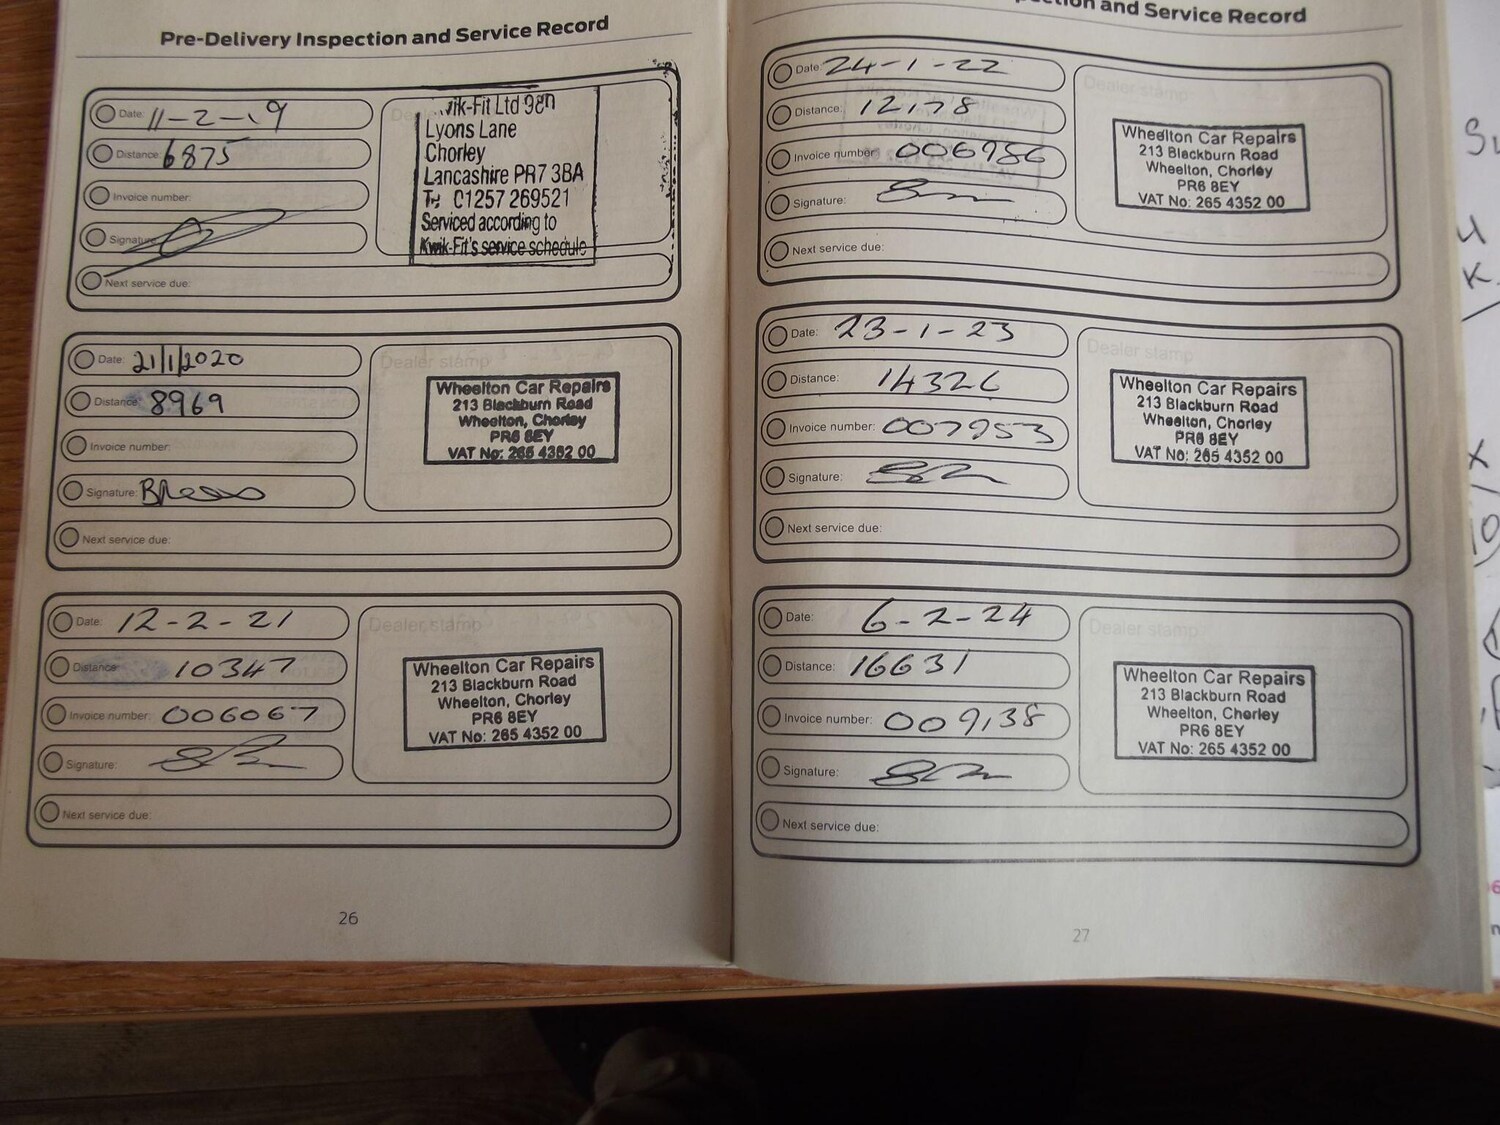 Pre-Delivery Inspection and Service Record
Date: 11-2-19
Distance: 6875
Invoice number:
Signature:
Next service due:
Kwik-Fit Ltd 98n
Lyons Lane
Chorley
Lancashire PR7 3BA
T: 01257 269521
Serviced according to
Kwik-Fit's service schedule
Date: 21/1/2020
Distance: 8969
Invoice number:
Signature:
Next service due:
Dealer stamp
Wheelton Car Repairs
213 Blackburn Road
Wheelton, Chorley
PR6 8EY
VAT No: 265 4352 00
Date: 12-2-21
Distance: 10347
Invoice number: 006067
Signature:
Next service due:
Dealer stamp
Wheelton Car Repairs
213 Blackburn Road
Wheelton, Chorley
PR6 8EY
VAT No: 265 4352 00
26
and Service Record
Date: 24-1-22
Distance: 12178
Invoice number: 006986
Signature:
Next service due:
Dealer stamp
Wheelton Car Repairs
213 Blackburn Road
Wheelton, Chorley
PR6 8EY
VAT No: 265 4352 00
Date: 23-1-23
Distance: 14326
Invoice number: 007953
Signature:
Next service due:
Dealer stamp
Wheelton Car Repairs
213 Blackburn Road
Wheelton, Chorley
PR6 8EY
VAT No: 265 4352 00
Date: 6-2-24
Distance: 16631
Invoice number: 009138
Signature:
Next service due:
Dealer stamp
Wheelton Car Repairs
213 Blackburn Road
Wheelton, Chorley
PR6 8EY
VAT No: 265 4352 00
27